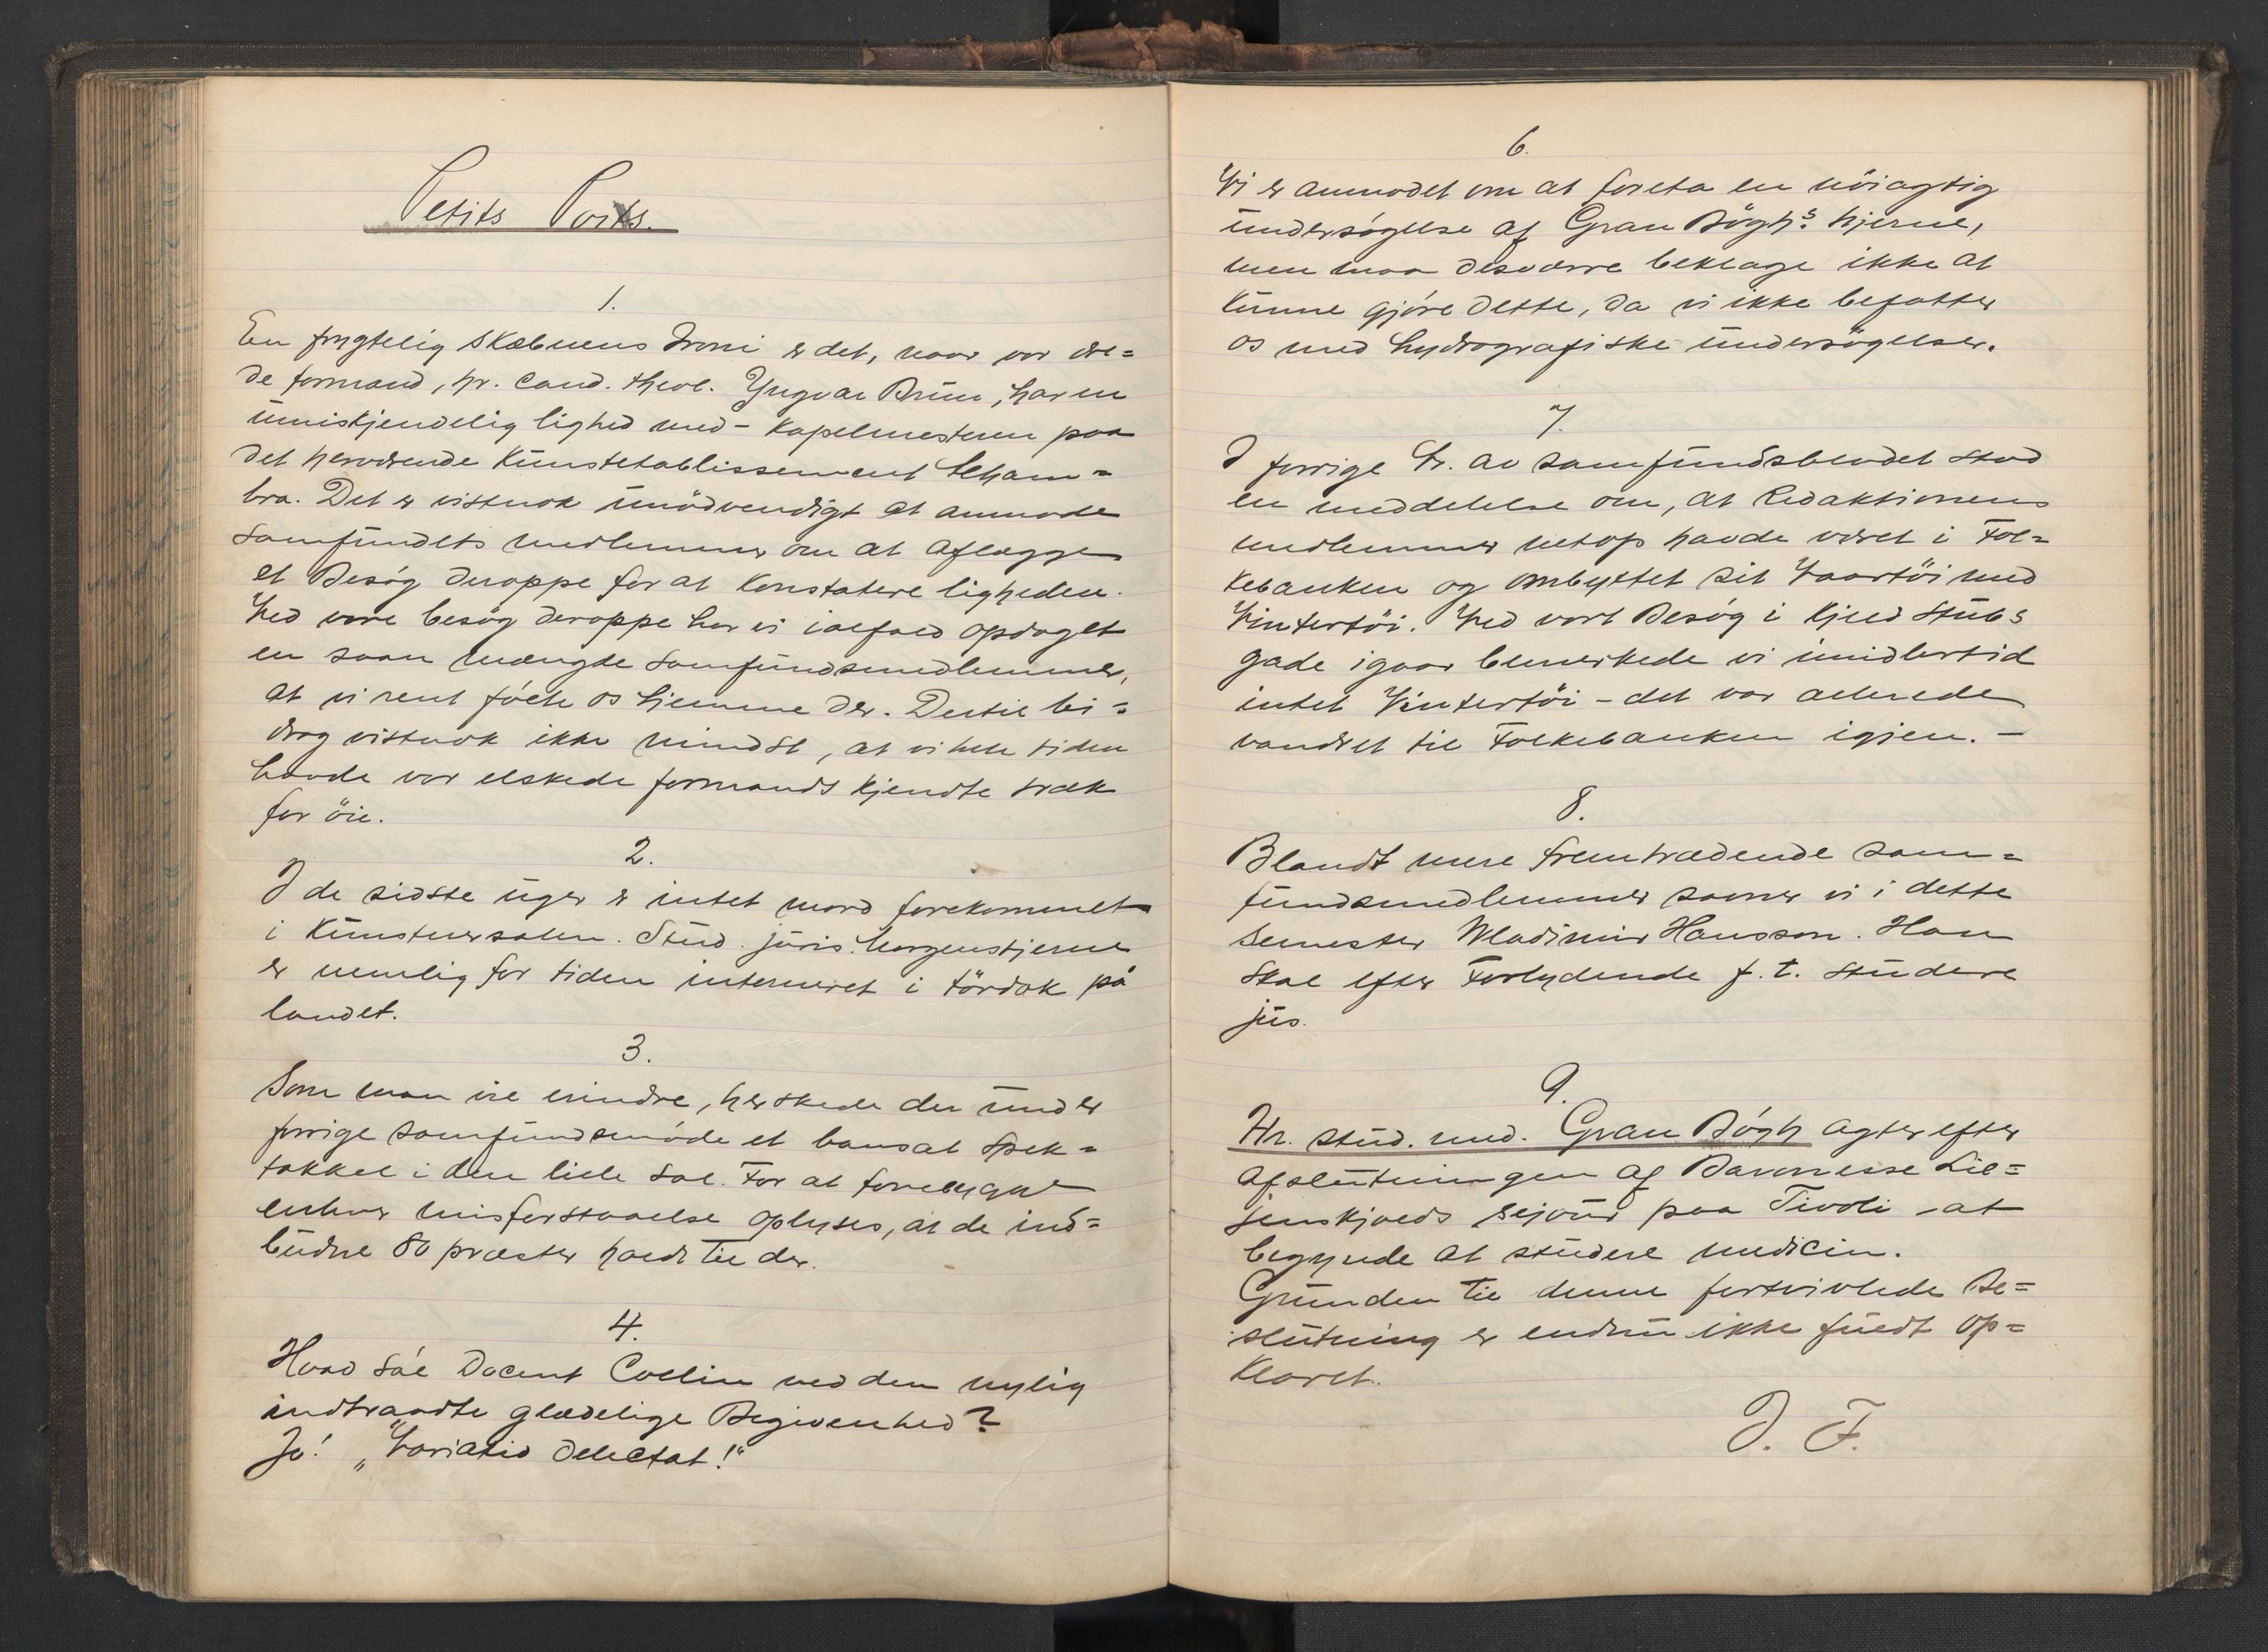 Petits Poixs.
1.
En frygtelig Skæbnens Ironi er det, naar vor ær=
de formand, hr. cand. theol. Yngvar Brun, har en
umiskjendelig lighed med - Kapelmesteren paa
det herværende Kunstetablissement Alham=
bra. Det er vistnok unödvendigt at anmode
Samfundets medlemmer om at aflægge
et Besög deroppe for at konstatere ligheden.
Ved vore besög deroppe har vi ialfald opdaget
en saan mængde Samfundsmedlemmer,
at vi rent fölte os hjemme der. Dertil bi=
drog vistnok ikke mindst, at vi hele tiden
havde vor elskede formands kjendte træk
for öie.
2.
I de sidste uger er intet mord forekommet
i Kunstnersalen. Stud. juris. Morgenstjerne
er nemlig for tiden interneret i tördok på
landet.
3.
Som man vil erindre, herskede der under
forrige samfundsmöde et bansat Spek=
takkel i den lille Sal. For at forebygge
enhver misforstaaelse oplyses, at de ind=
budne 80 præster holdt til der.
4.
Hvad sa'e Docent Collin ved den nylig
indtraadte glædelige Begivenhed?
Jo! „Variatio delectat!“
6.
Vi er anmodet om at foreta en nöiagtig
undersögelse af Gran Bögh's hjerne,
men maa desværre beklage ikke at
kunne gjöre dette, da vi ikke befatter
os med hydrografiske undersögelser.
7.
I forrige Nr. av Samfundsbladet stod
en meddelelse om, at Redaktionens
medlemmer netop havde været i Fol=
kebanken og ombyttet sit Vaartöi med
Vintertöi. Ved vort Besög i Kjeld Stubs
gade igaar bemerkede vi imidlertid
intet Vintertöi - det var allerede
vandret til Folkebanken igjen. -
8.
Blandt mere fremtrædende sam=
fundsmedlemmer savner vi i dette
Semester Wladimir Hansson. Han
skal efter Forlydende f. t. studere
jus.
9.
Hr. stud. med. Gran Bögh agter efter
afslutningen af Baronesse Lil=
jenskjolds sejour paa Tivoli - at
begynde at studere medicin.
Grunden til denne fortvivlede Be=
slutning er endnu ikke fuldt op=
klaret.
J. F.